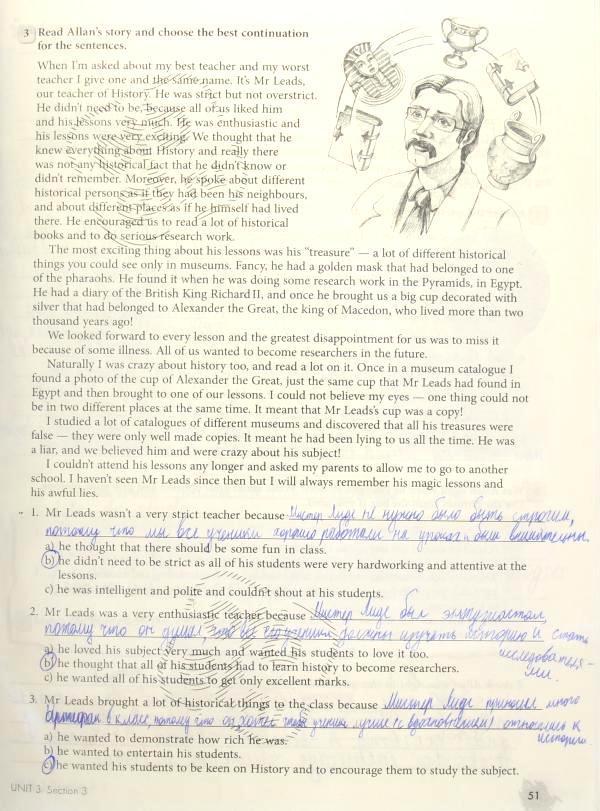 3 Read Allan's story and choose the best continuation
for the sentences.
When I'm asked about my best teacher and my worst
teacher I give one and the same name. It's Mr Leads,
our teacher of History. He was strict but not overstrict.
He didn't need to be, because all of us liked him
and his lessons very much. He was enthusiastic and
his lessons were very exciting. We thought that he
knew everything about History and really there
was not any historical fact that he didn't know or
didn't remember. Moreover, he spoke about different
historical persons as if they had been his neighbours,
and about different places as if he himself had lived
there. He encouraged us to read a lot of historical
books and to do serious research work.
The most exciting thing about his lessons was his "treasure" — a lot of different historical
things you could see only in museums. Fancy, he had a golden mask that had belonged to one
of the pharaohs. He found it when he was doing some research work in the Pyramids, in Egypt.
He had a diary of the British King Richard II, and once he brought us a big cup decorated with
silver that had belonged to Alexander the Great, the king of Macedon, who lived more than two
thousand years ago!
We looked forward to every lesson and the greatest disappointment for us was to miss it
because of some illness. All of us wanted to become researchers in the future.
Naturally I was crazy about history too, and read a lot on it. Once in a museum catalogue I
found a photo of the cup of Alexander the Great, just the same cup that Mr Leads had found in
Egypt and then brought to one of our lessons. I could not believe my eyes — one thing could not
be in two different places at the same time. It meant that Mr Leads's cup was a copy!
I studied a lot of catalogues of different museums and discovered that all his treasures were
false — they were only well made copies. It meant he had been lying to us all the time. He was
a liar, and we believed him and were crazy about his subject!
I couldn't attend his lessons any longer and asked my parents to allow me to go to another
school. I haven't seen Mr Leads since then but I will always remember his magic lessons and
his awful lies.
1. Mr Leads wasn't a very strict teacher because Мистер Лидс не нужно было быть строгим,
потому что мы все ученики хорошо работали на уроках и были внимательны.
a) he thought that there should be some fun in class.
b) he didn't need to be strict as all of his students were very hardworking and attentive at the
lessons.
c) he was intelligent and polite and couldn't shout at his students.
2. Mr Leads was a very enthusiastic teacher because Мистер Лидс был энтузиастом,
потому что он думал, что все его ученики должны изучать историю и стать
исследователя-
ми.
a) he loved his subject very much and wanted his students to love it too.
b) he thought that all of his students had to learn history to become researchers.
c) he wanted all of his students to get only excellent marks.
3. Mr Leads brought a lot of historical things to the class because Мистер Лидс приносил много
в класс, потому что он хотел чтобы ученики лучше относились к
истории.
a) he wanted to demonstrate how rich he was.
b) he wanted to entertain his students.
c) he wanted his students to be keen on History and to encourage them to study the subject.
UNIT 3 Section 3
51